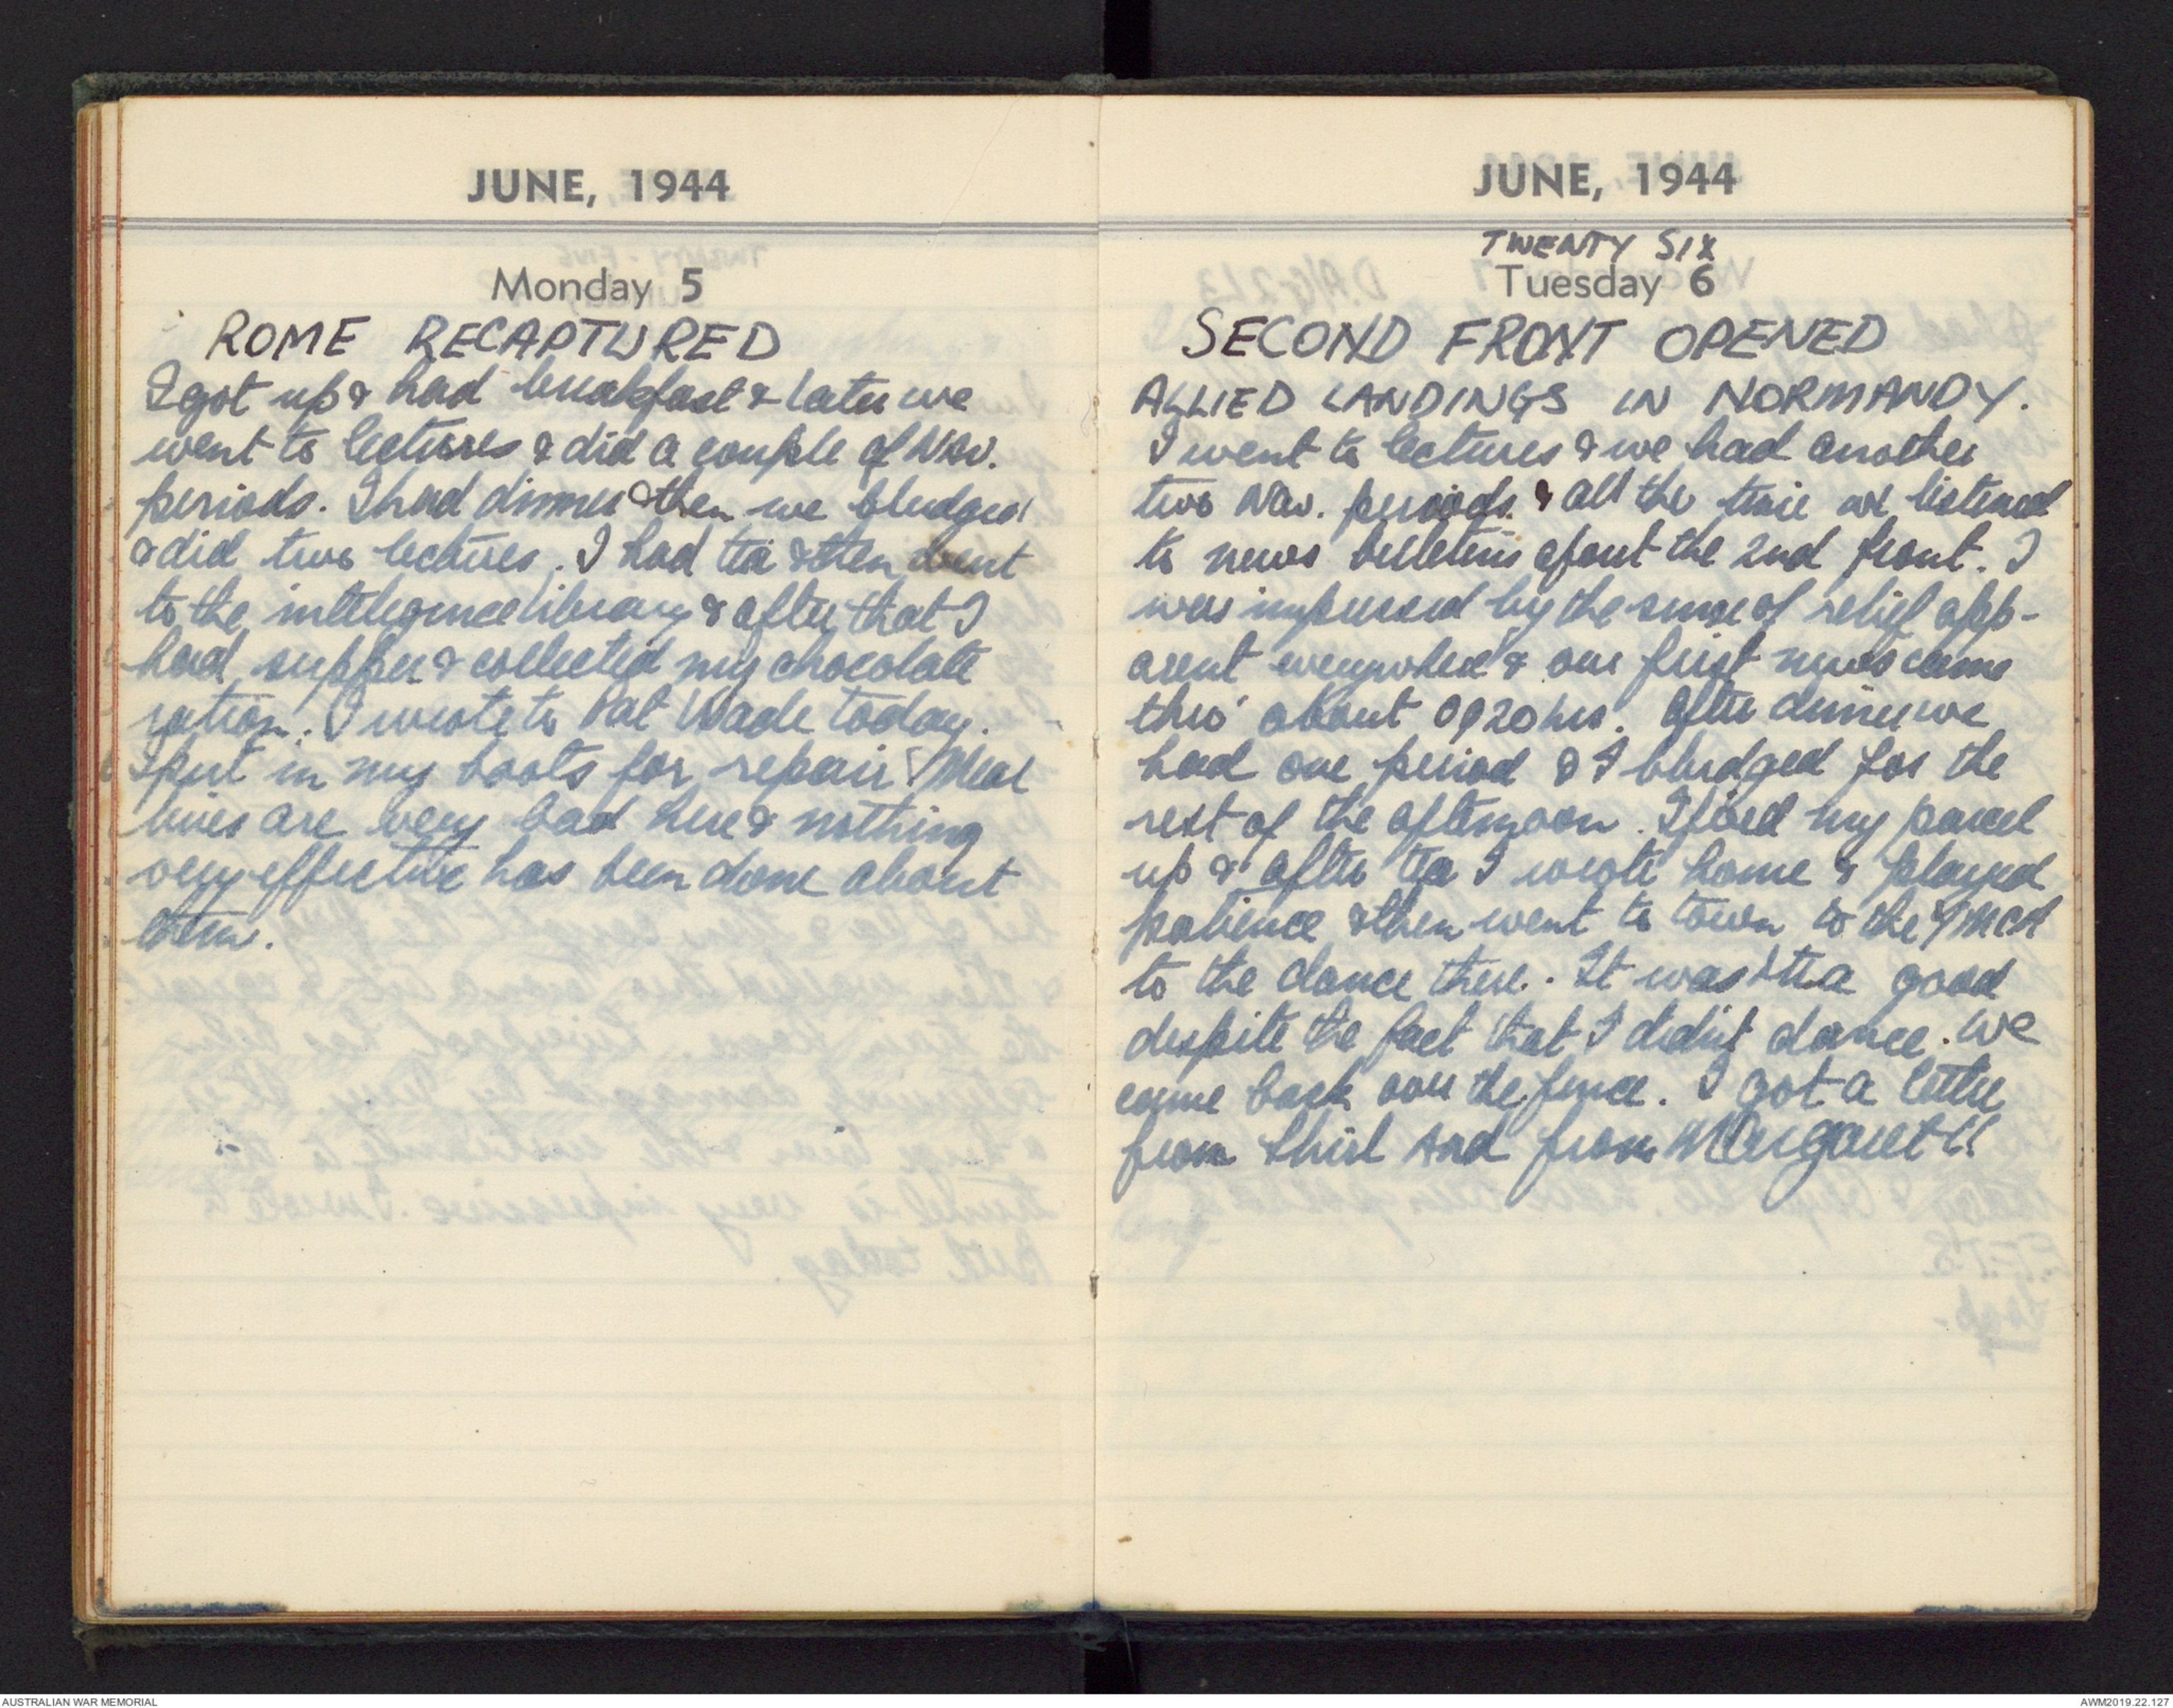 JUNE, 1944
Monday 5
ROME RECAPTURED
I got up & had breakfast & later we
went to lectures & did a couple of Nav.
periods. I had dinner & then we bludged
& did two lectures. I had tea & then went
to the intelegence library & after that I
had supper & collected my chocolate
ration. I wrote to Pat Wade today.
I put in my boots for repair. Meal
lines are very bad here & nothing
very effective has been done about
them.
JUNE, 1944
TWENTY SIX
Tuesday 6
SECOND FRONT OPENED
ALLIED LANDINGS IN NORMANDY.
I went to lectures & we had another
two Nav. periods & all the time we listened
to news bulletins about the 2nd front. I
was impressed by the sense of relief app-
arent everywhere & our first news came
thro' about 0920 hrs. After dinner we
had one period & I bludged for the
rest of the afternoon. I fixed my parcel
up & after tea I wrote home & played
patience & then went to town to the YMCA
to the dance there. It was good
despite the fact that I didn't dance. We
came back over the fence. I got a letter
from Shirl and from Margaret!!
AUSTRALIAN WAR MEMORIAL
AWM2019.22.127